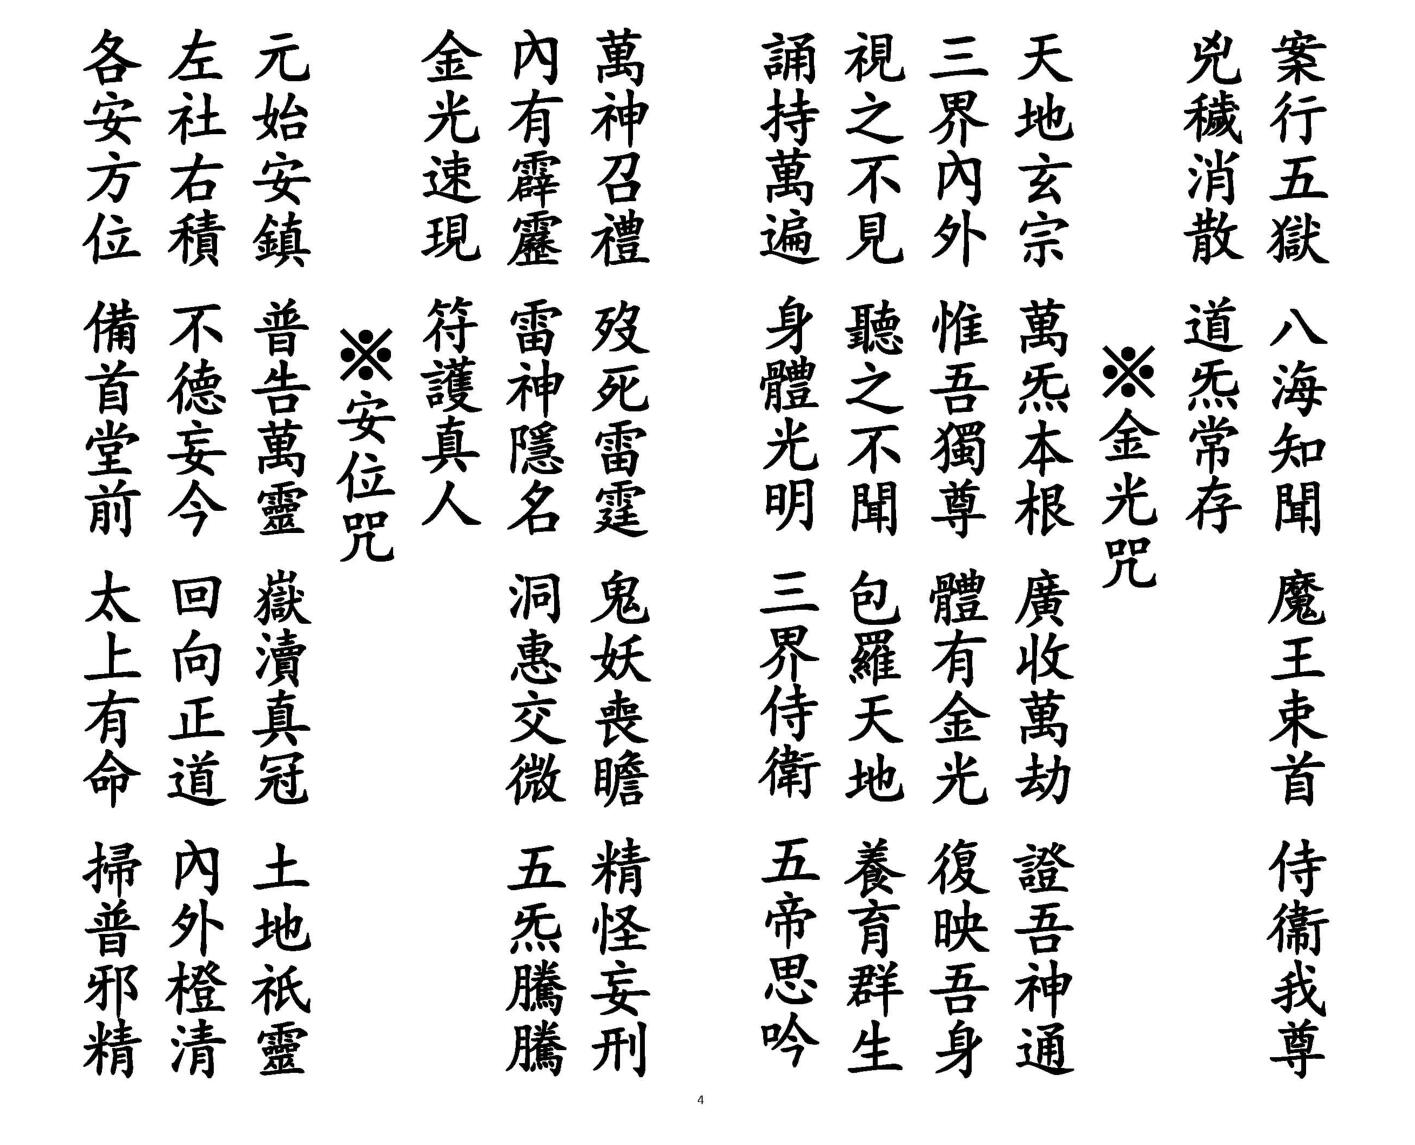 案行五獄 八海知聞 魔王束首 侍衞我尊
兇穢消散 道炁常存
※金光咒
天地玄宗 萬炁本根 廣收萬劫 證吾神通
三界內外 惟吾獨尊 體有金光 復映吾身
視之不見 聽之不聞 包羅天地 養育群生
誦持萬遍 身體光明 三界侍衛 五帝思吟
萬神召禮 歿死雷霆 鬼妖喪瞻 精怪妄刑
內有霹靂 雷神隱名 洞惠交微 五炁騰騰
金光速現 符護真人
※安位咒
元始安鎮 普告萬靈 嶽瀆真冠 土地祇靈
左社右積 不德妄今 回向正道 內外橙清
各安方位 備首堂前 太上有命 掃普邪精
4